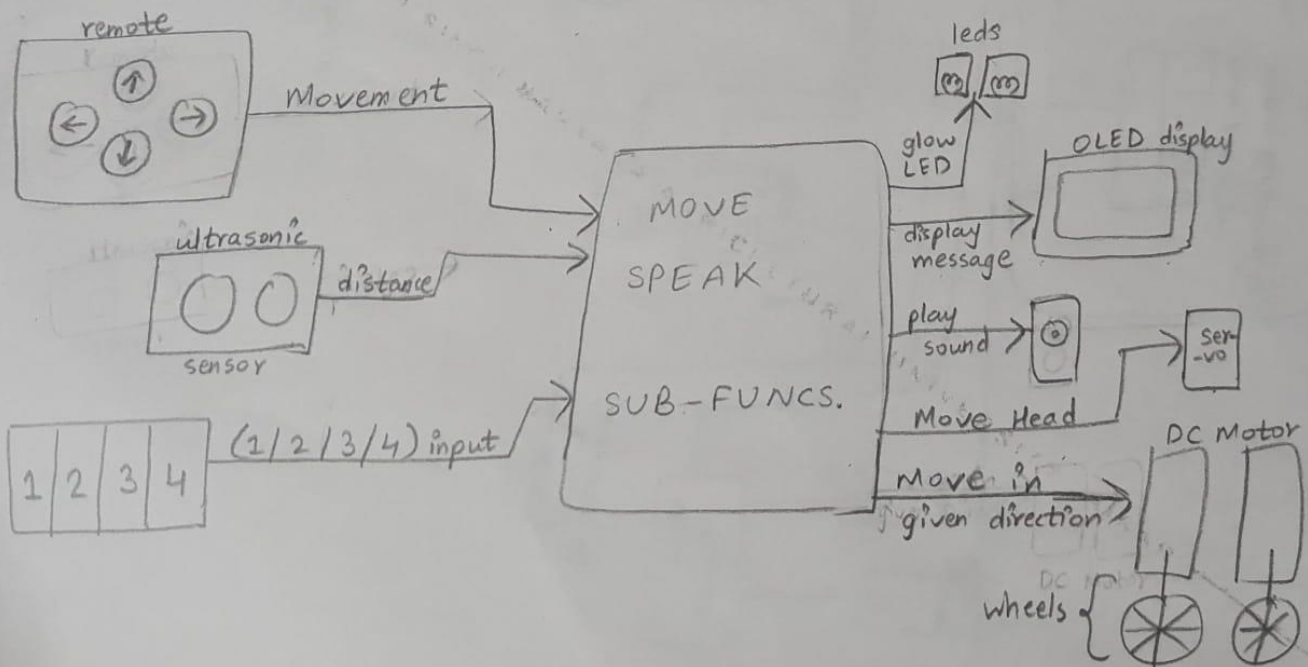 remote
Movement
ultrasonic
sensor
distance
1 2 3 4
(1/2/3/4) input
MOVE
SPEAK
SUB-FUNCS.
leds
glow
LED
OLED display
display
message
play
sound
Ser-
-vo
Move Head
DC Motor
Move in
given direction
wheels